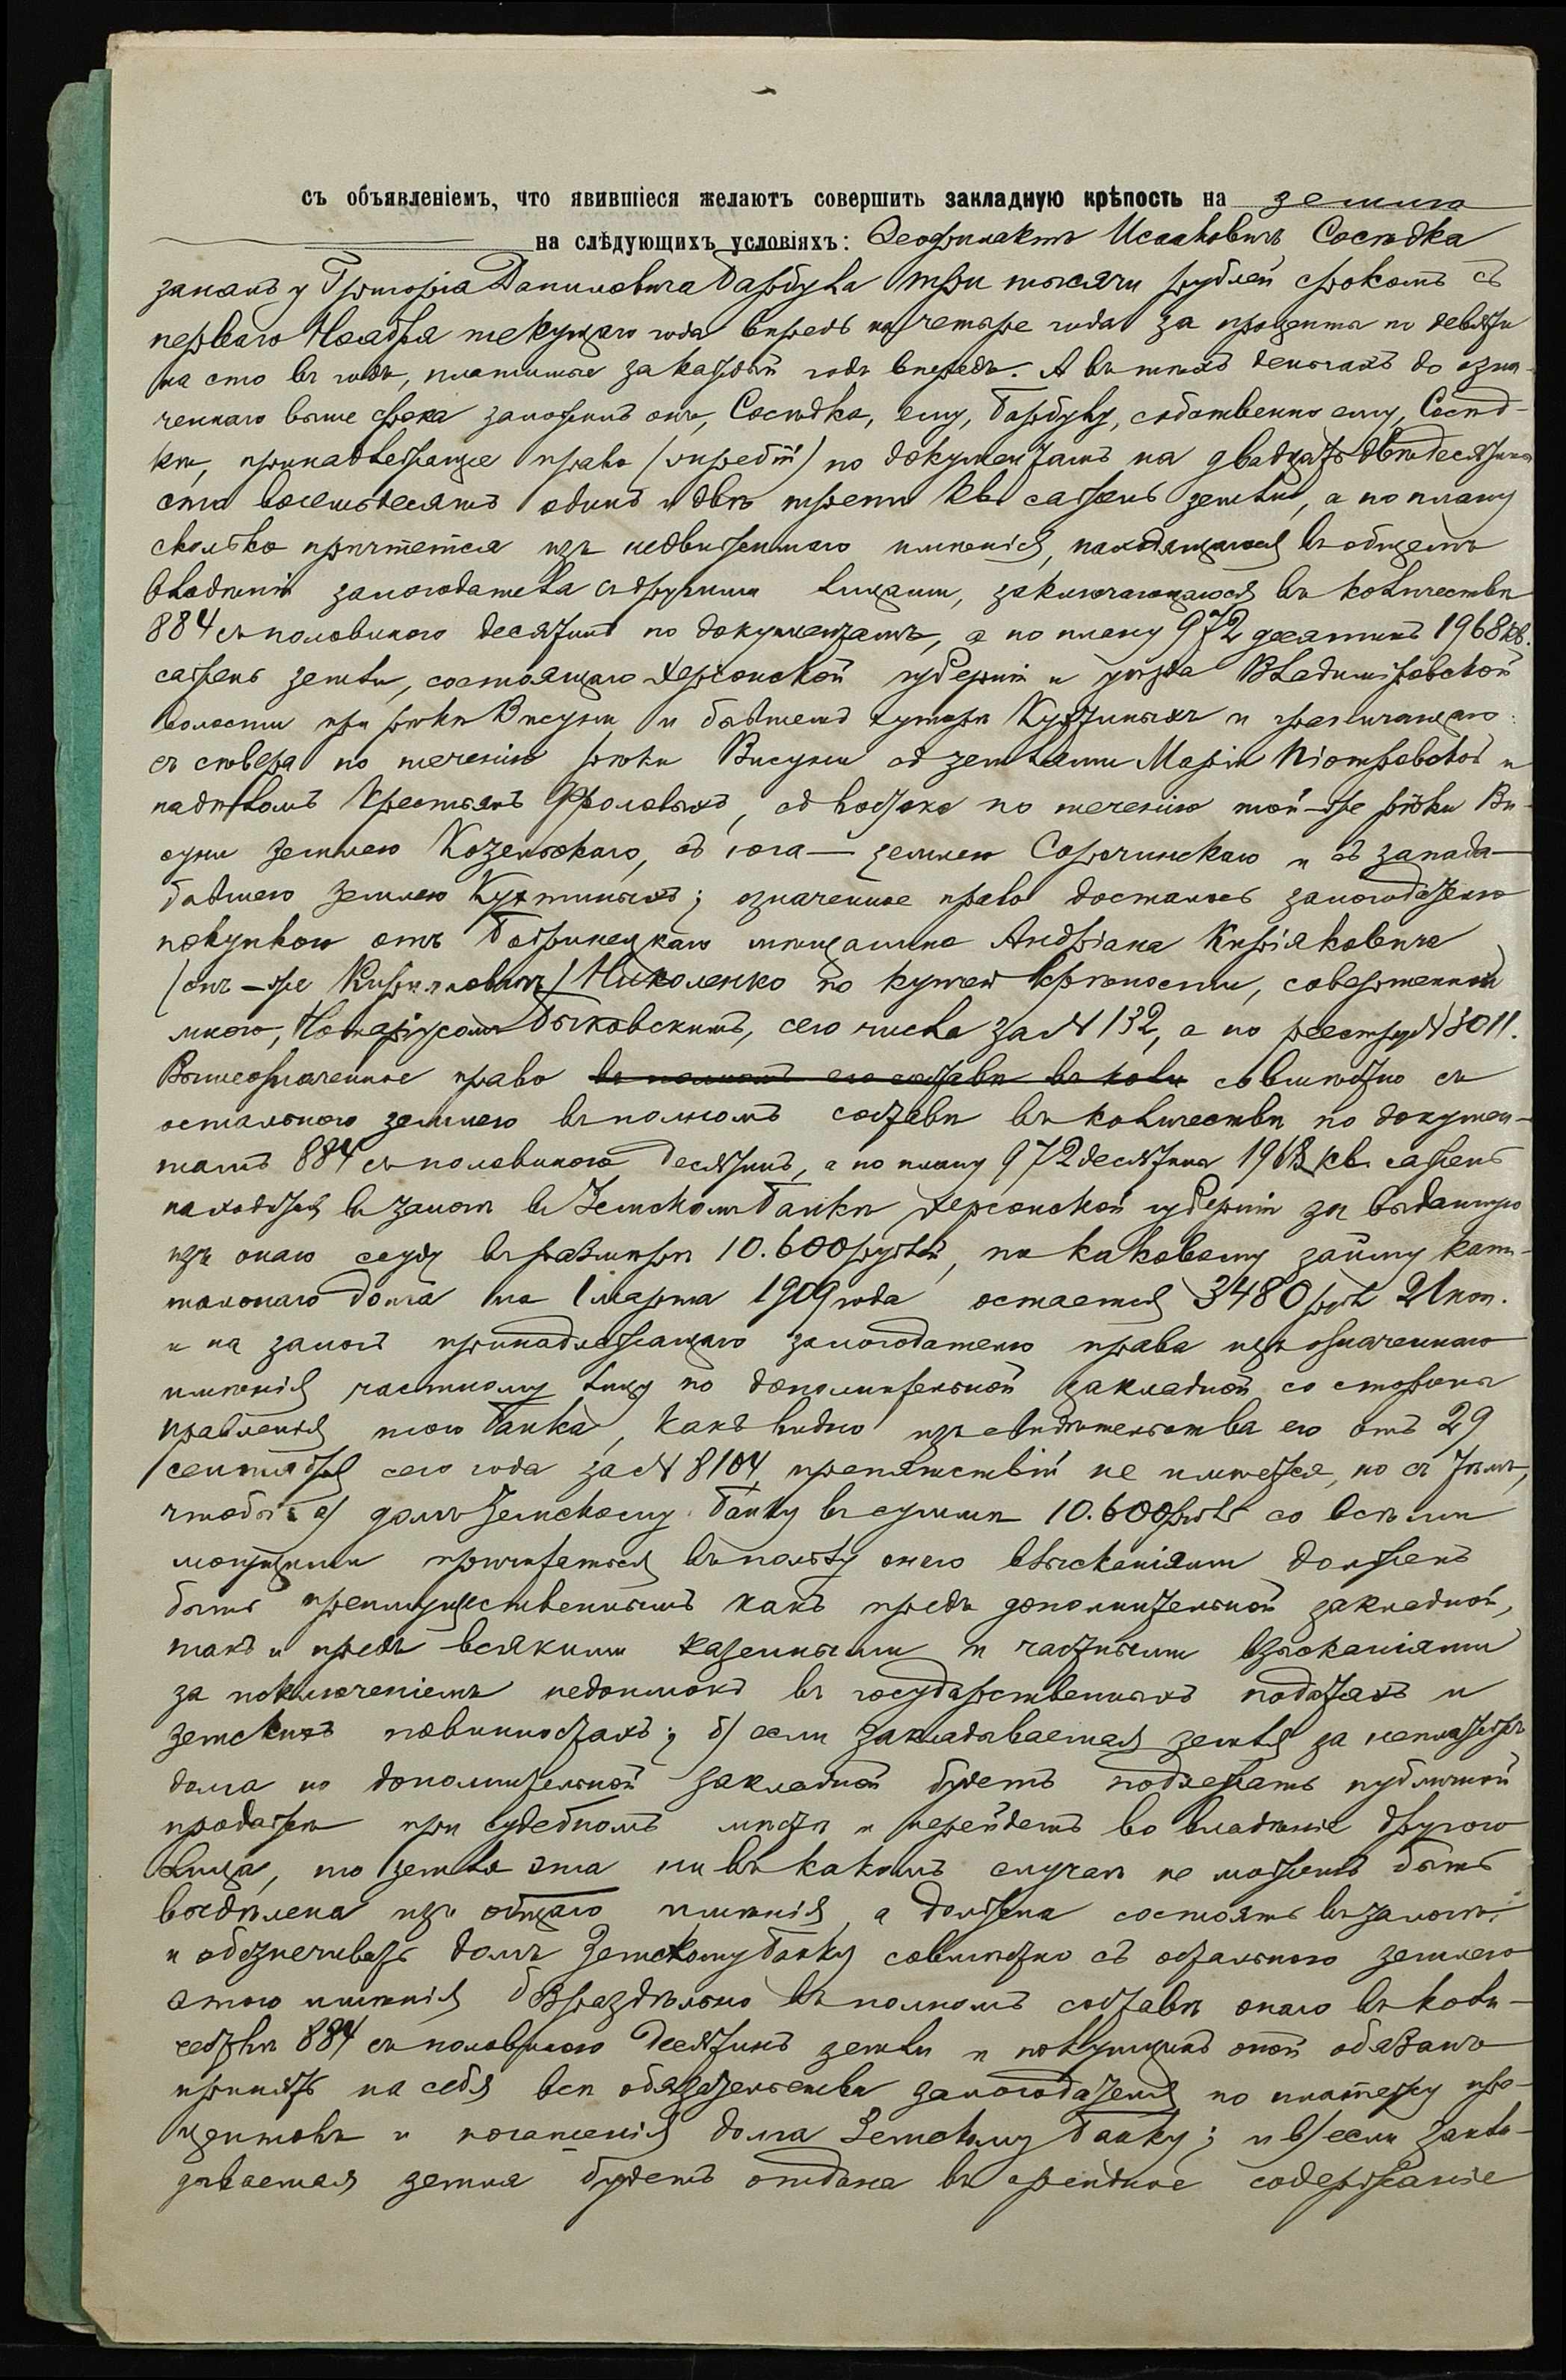 съ объявленіемъ, что явившіеся желаютъ совершить закладную крѣпость на землю
на слѣдующихъ условіяхъ: Ѳеофилактъ Исааковичъ Сосѣдка
занялъ у Григорія Даниловича Барбула три тысячи рублей срокомъ съ
перваго Ноября текущаго года впредь на четыре года за проценты по девяти
на сто въ годъ, платимые за каждый годъ впередъ. А въ тѣхъ деньгахъ до озна-
ченнаго выше срока заложилъ онъ, Сосѣдка, ему, Барбулу, собственно ему, Сосѣд-
кѣ, принадлежащее право (жребій) по документамъ на двадцать двѣ десятины
сто восемьдесятъ одинъ и двѣ трети кв. сажень земли, а по плану
сколько причтется изъ недвижимаго имѣнія, находящагося въ общемъ
владѣніи залогодателя съ другими лицами, заключающагося въ количествѣ
884 съ половиною десятинъ по документамъ, а по плану 972 десятинъ 1968 кв.
сажень земли, состоящаго Херсонской губерніи и уѣзда Владиміровской
волости при рѣкѣ Висуни и бывшемъ хуторѣ Кухтиныхъ и граничащаго:
съ сѣвера по теченію рѣки Висуни съ землями Маріи Піотровской и
надѣломъ крестьянъ Фроловыхъ, съ востока по теченію той-же рѣки Ви-
суни землею Козельскаго, съ юга — землею Сорочинскаго и съ запада —
бывшею землею Кухтиныхъ; означенное право досталось залогодателю
покупкою отъ Бобринецкаго мѣщанина Андріана Киріяковича
(онъ-же Кирилловичъ) Николенко по купчей крѣпости, совершенной
мною, Нотаріусомъ Быковскимъ, сего числа за № 132, а по реестру № 3011.
Вышеозначенное право въ полномъ его составѣ въ коли совмѣстно съ
остальною землею въ полномъ составѣ въ количествѣ по докумен-
тамъ 884 съ половиною десятинъ, а по плану 972 десятины 1968 кв. сажень
находится въ залогѣ въ Земскомъ Банкѣ Херсонской губерніи за выданную
изъ онаго ссуду въ размѣрѣ 10.600 рублей, по каковому займу капи-
тальнаго долга на 1 марта 1909 года остается 3480 руб. 21 коп.
и на залогъ принадлежащаго залогодателю права изъ означеннаго
имѣнія частному лицу по дополнительной закладной со стороны
правленія того Банка, какъ видно изъ свидѣтельства его отъ 29
сентября сего года за № 8104, препятствій не имѣется, но съ тѣмъ,
чтобы: а) долгъ Земскому Банку въ суммѣ 10.600 руб. со всѣми
могущими причитаться въ пользу онаго взысканіями долженъ
быть преимущественнымъ какъ предъ дополнительной закладной,
такъ и предъ всякими казенными и частными взысканіями
за исключеніемъ недоимокъ въ государственныхъ податяхъ и
земскихъ повинностяхъ; б) если закладываемая земля за неплатежъ
долга по дополнительной закладной будетъ подлежать публичной
продажѣ при судебномъ мѣстѣ и перейдетъ во владѣніе другого
лица, то земля эта ни въ какомъ случаѣ не можетъ быть
выдѣлена изъ общаго имѣнія, а должна состоять въ залогѣ
и обезпечивать долгъ Земскому Банку совмѣстно съ остальною землею
этого имѣнія безраздѣльно въ полномъ составѣ онаго въ коли-
чествѣ 884 съ половиною десятинъ земли и покупщикъ этой обязанъ
принять на себя всѣ обязательства залогодателя по платежу про-
центовъ и погашенія долга Земскому Банку; и в) если закла-
дываемая земля будетъ отдана въ арендное содержаніе